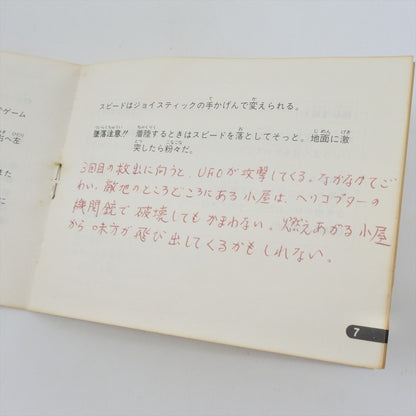 でゲーム
スピードはジョイスティックの手かげんで変えられる。
墜落注意!! 着陸するときはスピードを落としてそっと。地面に激
突したら粉々だ。
3回目の救出に向うと、UFOが攻撃してくる。なかなかてご
わい。敵地のところどころにある小屋は、ヘリコプターの
機関銃で破壊してもかまわない。燃えあがる小屋
から味方が飛び出してくるかもしれない。
7